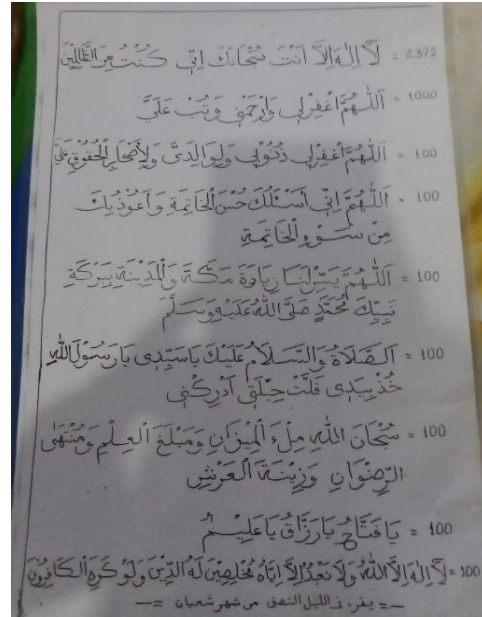 2375 = لَآ اِلٰهَ اِلَّآ اَنْتَ سُبْحَانَكَ اِنِّي كُنْتُ مِنَ الظَّالِمِيْنَ
1000 = اَللّٰهُمَّ اغْفِرْلِي وَارْحَمْنِي وَتُبْ عَلَيَّ
100 = اَللّٰهُمَّ اغْفِرْلِي ذُنُوْبِي وَلِوَالِدَيَّ وَلِاَصْحَابِ الْحُقُوْقِ عَلَيَّ
100 = اَللّٰهُمَّ اِنِّي اَسْئَلُكَ حُسْنَ الْخَاتِمَةِ وَاَعُوْذُ بِكَ
مِنْ سُوْءِ الْخَاتِمَةِ
100 = اَللّٰهُمَّ يَسِّرْلَنَا زِيَارَةَ مَكَّةَ وَالْمَدِيْنَةِ بِبَرَكَةِ
نَبِيِّكَ مُحَمَّدٍ صَلَّى اللّٰهُ عَلَيْهِ وَسَلَّمَ
100 = اَلصَّلَاةُ وَالسَّلَامُ عَلَيْكَ يَاسَيِّدِي يَارَسُوْلَ اللّٰهِ
خُذْ بِيَدِي قَلَّتْ حِيْلَتِي اَدْرِكْنِي
100 = سُبْحَانَ اللّٰهِ مِلْءَ الْمِيْزَانِ وَمَبْلَغَ الْعِلْمِ وَمُنْتَهَى
الرِّضْوَانِ وَزِيْنَةَ الْعَرْشِ
100 = يَافَتَّاحُ يَارَزَّاقُ يَاعَلِيْمُ
100 = لَآ اِلٰهَ اِلَّا اللّٰهُ وَلَا نَعْبُدُ اِلَّا اِيَّاهُ مُخْلِصِيْنَ لَهُ الدِّيْنَ وَلَوْ كَرِهَ الْكَافِرُوْنَ
=- يقرء في الليل النصف من شهر شعبان -=